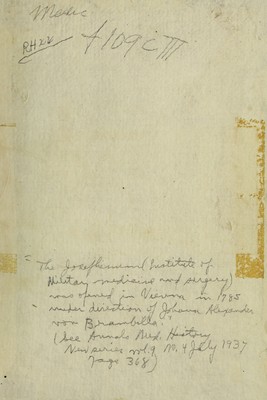 Medic
RH22
+109 c III
"The Josephinum (Institute of
Military medicine and surgery)
was opened in Vienna in 1785
under direction of Johann Alexander
von Brambilla."
(See Annals Med. History
New series vol. 9 No. 4 July 1937
Page 368)